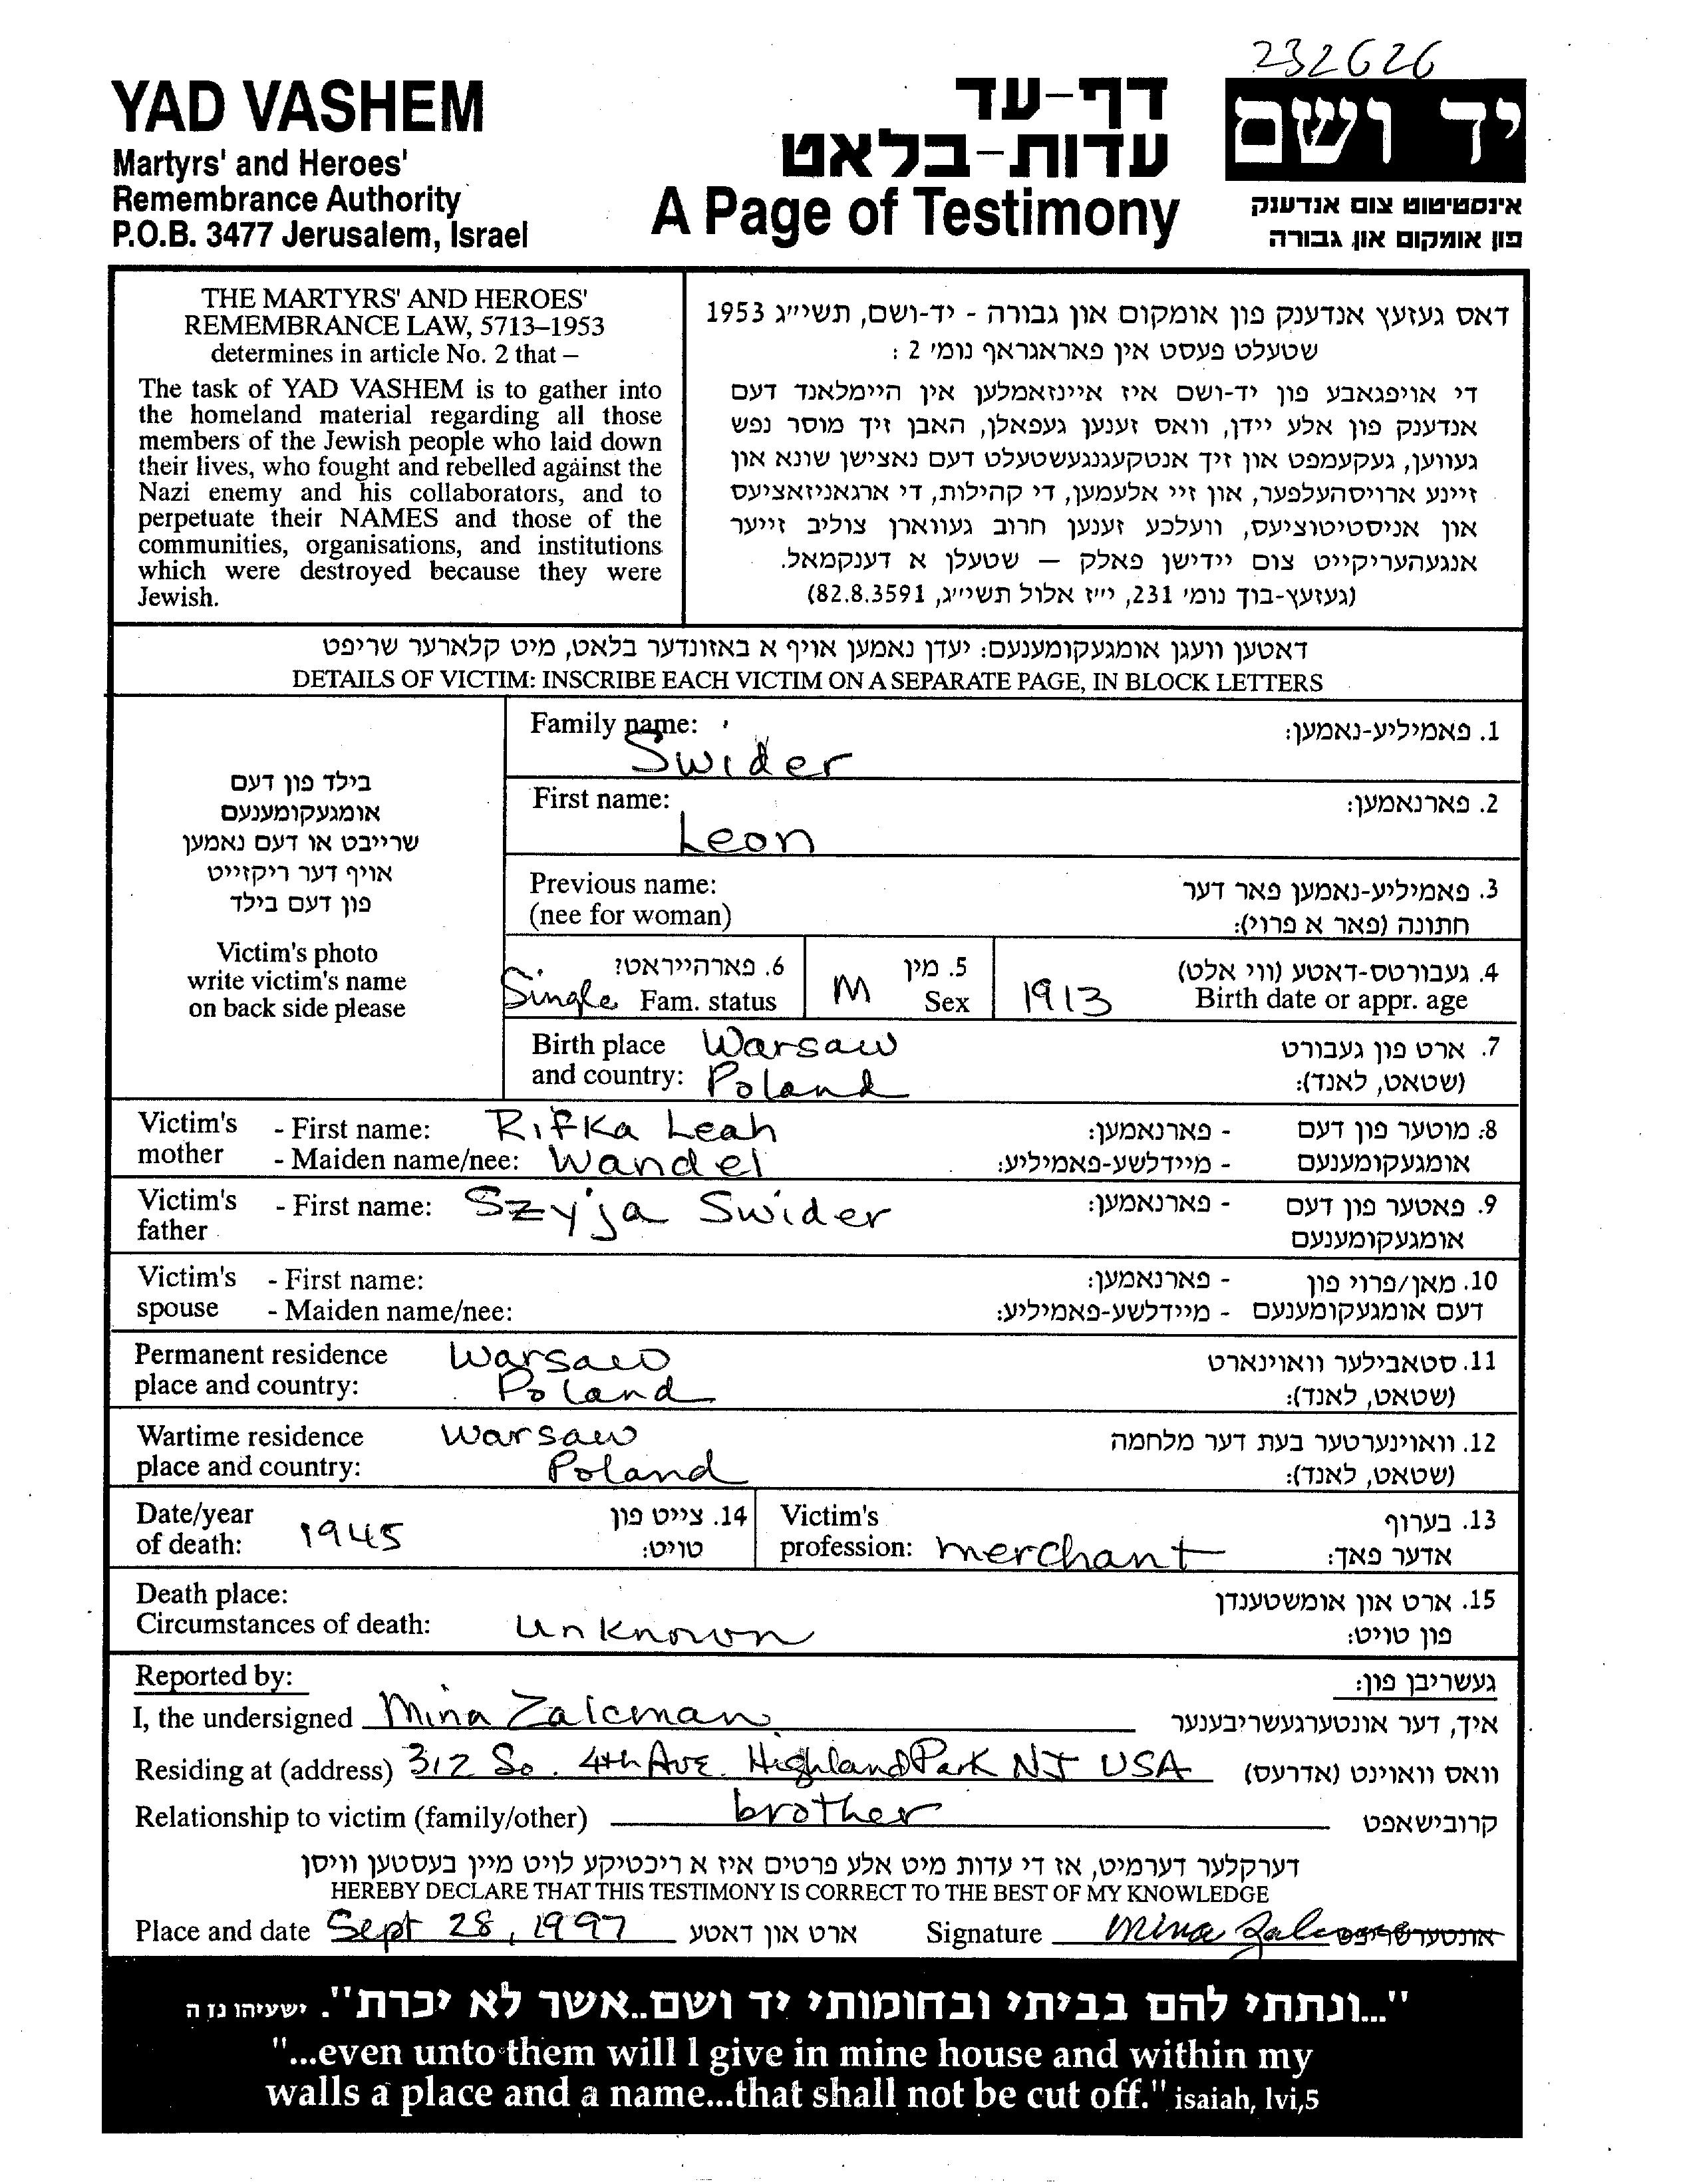 232626
YAD VASHEM
Martyrs' and Heroes'
Remembrance Authority
P.O.B. 3477 Jerusalem, Israel
דף-עד
עדות-בלאט
A Page of Testimony
יד ושם
אינסטיטוט צום אנדענק
פון אומקום און גבורה
THE MARTYRS' AND HEROES'
REMEMBRANCE LAW, 5713–1953
determines in article No. 2 that –
The task of YAD VASHEM is to gather into
the homeland material regarding all those
members of the Jewish people who laid down
their lives, who fought and rebelled against the
Nazi enemy and his collaborators, and to
perpetuate their NAMES and those of the
communities, organisations, and institutions
which were destroyed because they were
Jewish.
דאס געזעץ אנדענק פון אומקום און גבורה - יד-ושם, תשי״ג 1953
שטעלט פעסט אין פאראגראף נומ׳ 2 :
די אויפגאבע פון יד-ושם איז איינזאמלען אין היימלאנד דעם
אנדענק פון אלע יידן, וואס זענען געפאלן, האבן זיך מוסר נפש
געווען, געקעמפט און זיך אנטקעגנגעשטעלט דעם נאצישן שונא און
זיינע ארויסהעלפער, און זיי אלעמען, די קהילות, די ארגאניזאציעס
און אניסטיטוציעס, וועלכע זענען חרוב געווארן צוליב זייער
אנגעהעריקייט צום יידישן פאלק — שטעלן א דענקמאל.
(געזעץ-בוך נומ׳ 231, י״ז אלול תשי״ג, 82.8.3591)
דאטען וועגן אומגעקומענעם: יעדן נאמען אויף א באזונדער בלאט, מיט קלארער שריפט
DETAILS OF VICTIM: INSCRIBE EACH VICTIM ON A SEPARATE PAGE, IN BLOCK LETTERS
בילד פון דעם
אומגעקומענעם
שרייבט או דעם נאמען
אויף דער ריקזייט
פון דעם בילד
Victim's photo
write victim's name
on back side please
Family name: Swider 1. פאמיליע-נאמען:
First name: Leon 2. פארנאמען:
Previous name: 3. פאמיליע-נאמען פאר דער
(nee for woman) חתונה (פאר א פרוי):
6. פארהייראט? 5. מין 4. געבורטס-דאטע (ווי אלט)
Single Fam. status M Sex 1913 Birth date or appr. age
Birth place Warsaw 7. ארט פון געבורט
and country: Poland (שטאט, לאנד):
Victim's - First name: Rifka Leah - פארנאמען: 8. מוטער פון דעם
mother - Maiden name/nee: Wandel - מיידלשע-פאמיליע: אומגעקומענעם
Victim's - First name: Szyja Swider - פארנאמען: 9. פאטער פון דעם
father אומגעקומענעם
Victim's - First name: - פארנאמען: 10. מאן/פרוי פון
spouse - Maiden name/nee: - מיידלשע-פאמיליע: דעם אומגעקומענעם
Permanent residence Warsaw 11. סטאבילער וואוינארט
place and country: Poland (שטאט, לאנד):
Wartime residence Warsaw 12. וואוינערטער בעת דער מלחמה
place and country: Poland (שטאט, לאנד):
Date/year 14. צייט פון Victim's 13. בערוף
of death: 1945 טויט: profession: merchant אדער פאך:
Death place: 15. ארט און אומשטענדן
Circumstances of death: unknown פון טויט:
Reported by: געשריבן פון:
I, the undersigned Mina Zalcman איך, דער אונטערגעשריבענער
Residing at (address) 312 So. 4th Ave. Highland Park NJ USA וואס וואוינט (אדרעס)
Relationship to victim (family/other) brother קרובישאפט
דערקלער דערמיט, אז די עדות מיט אלע פרטים איז א ריכטיקע לויט מיין בעסטען וויסן
HEREBY DECLARE THAT THIS TESTIMONY IS CORRECT TO THE BEST OF MY KNOWLEDGE
Place and date Sept 28, 1997 ארט און דאטע Signature Mina Zalcman אונטערשריפט
"...ונתתי להם בביתי ובחומותי יד ושם..אשר לא יכרת". ישעיהו נז ה
"...even unto them will I give in mine house and within my
walls a place and a name...that shall not be cut off." isaiah, lvi,5